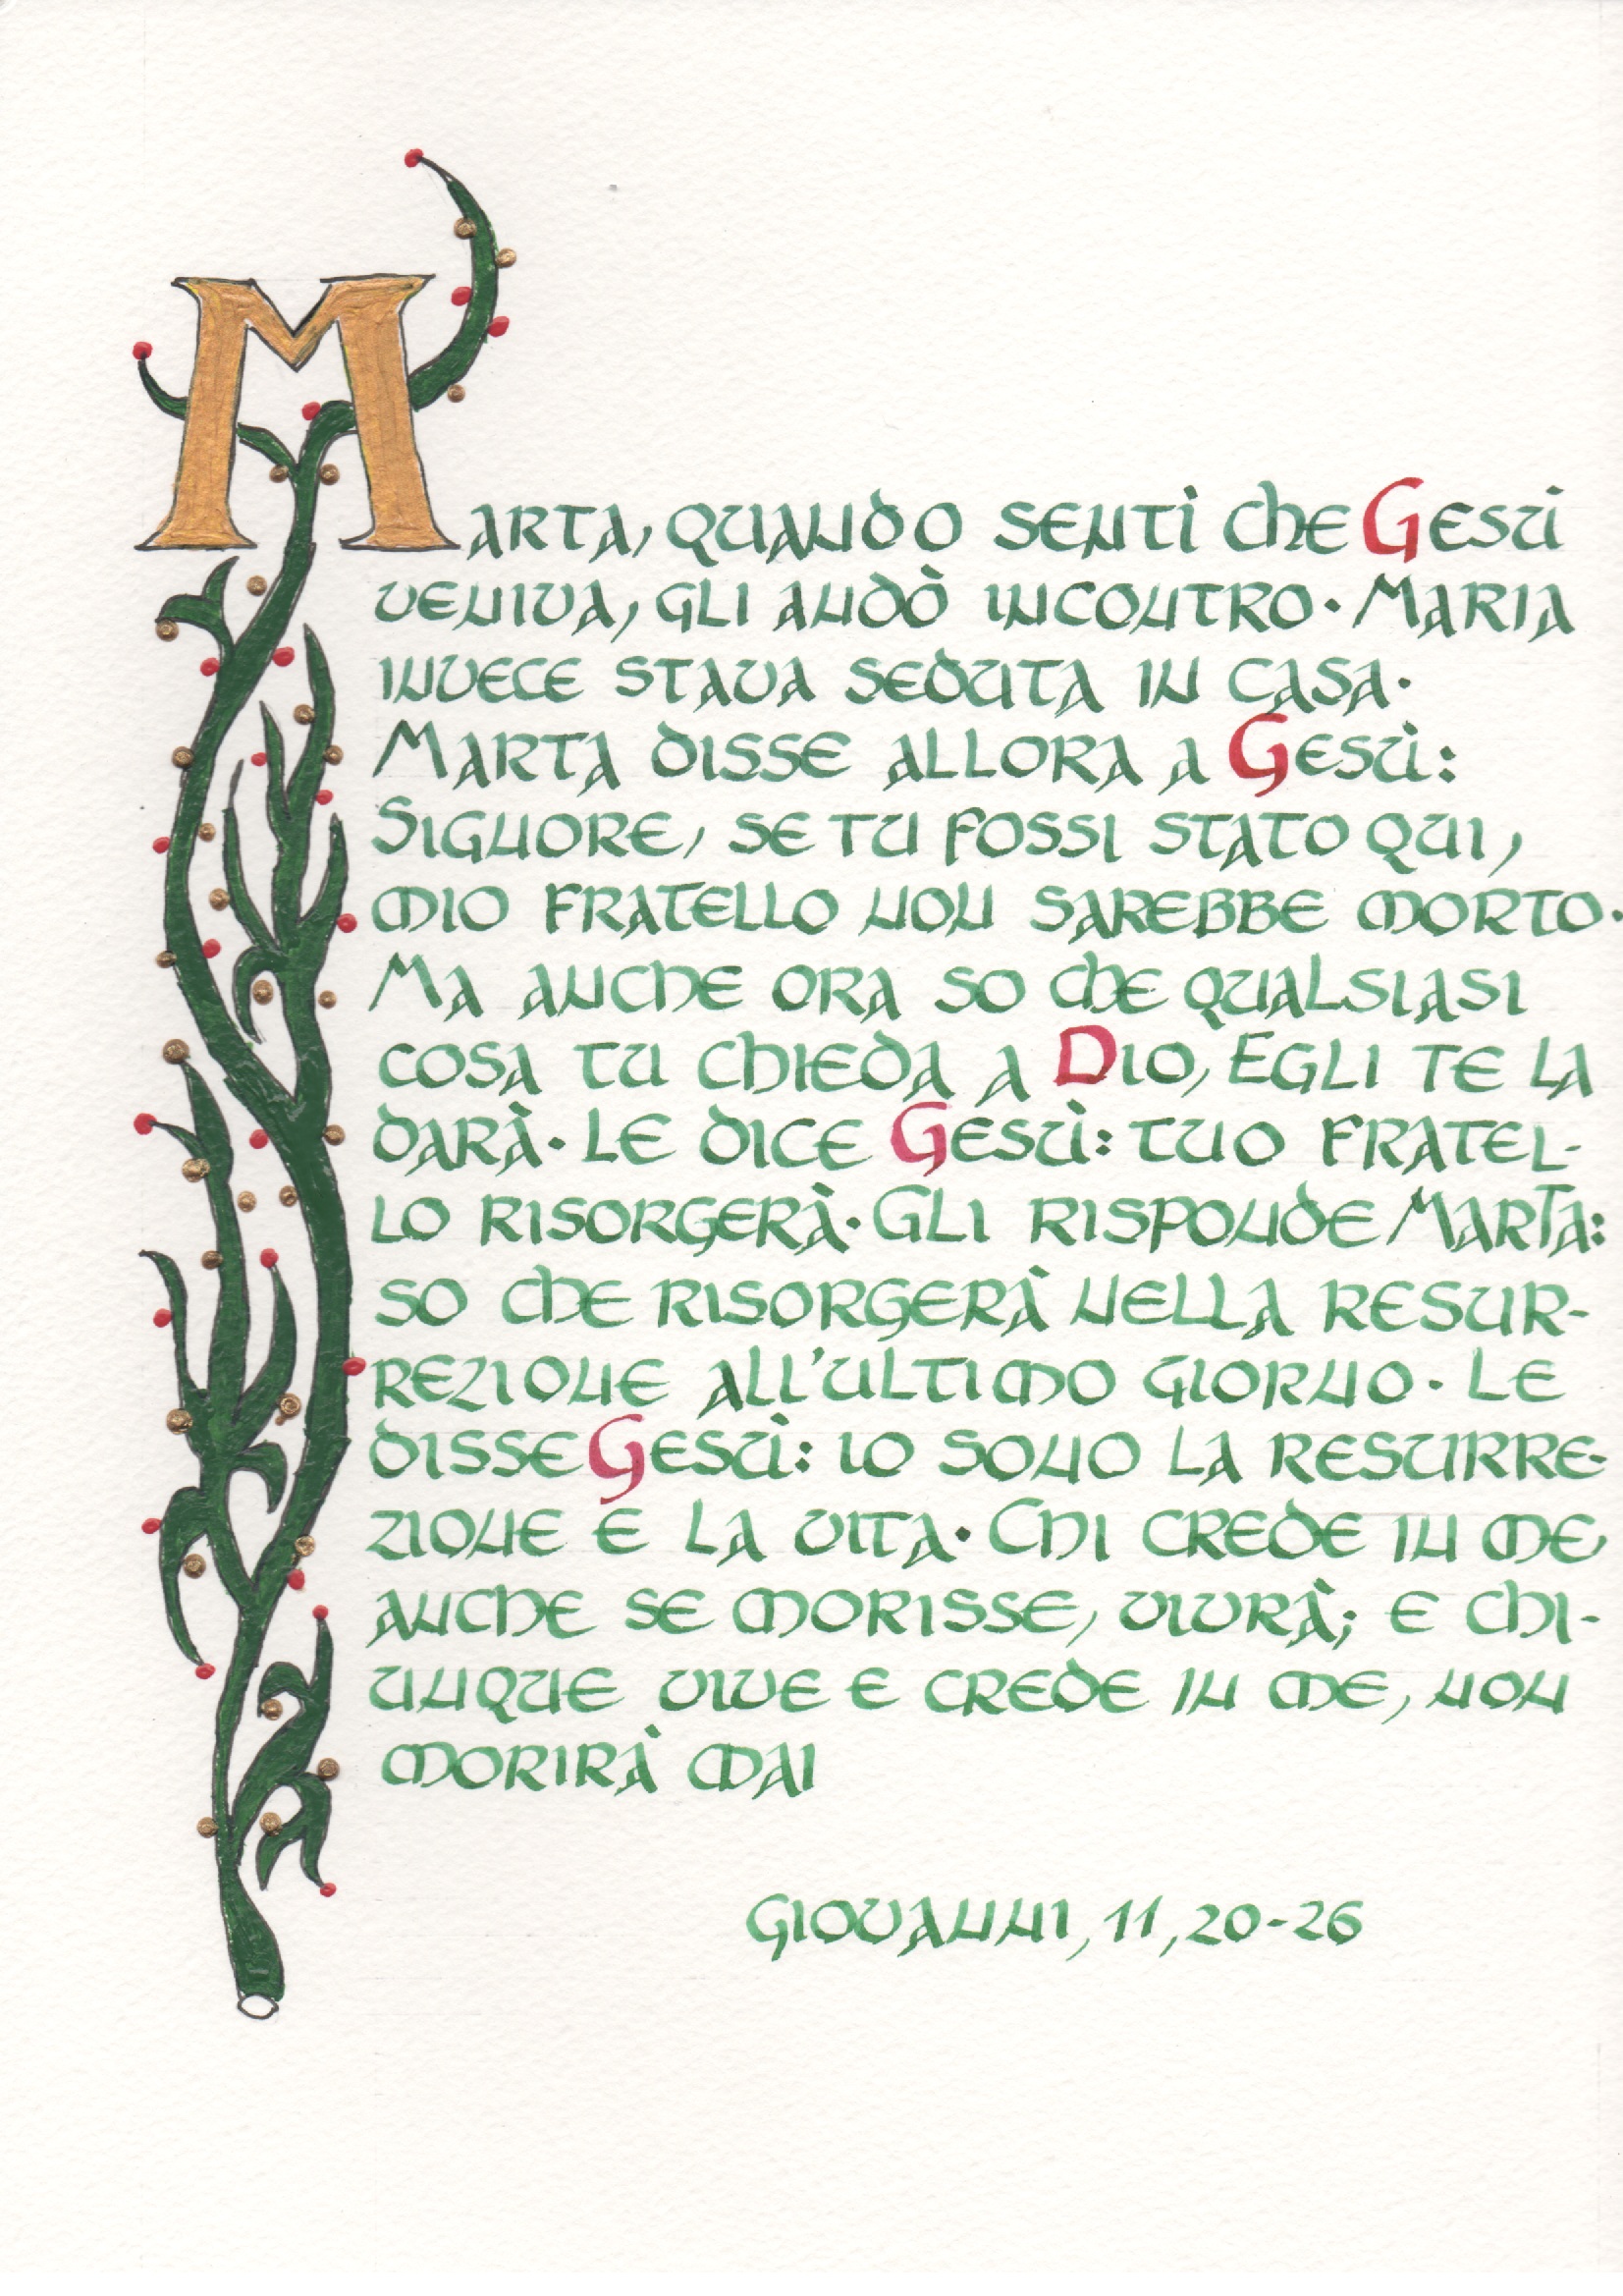 Marta, quando sentì che Gesù
veniva, gli andò incontro. Maria
invece stava seduta in casa.
Marta disse allora a Gesù:
Signore, se tu fossi stato qui,
mio fratello non sarebbe morto.
Ma anche ora so che qualsiasi
cosa tu chieda a Dio, Egli te la
darà. Le dice Gesù: tuo fratel-
lo risorgerà. Gli risponde Marta:
so che risorgerà nella resur-
rezione all'ultimo giorno. Le
disse Gesù: io sono la resurre-
zione e la vita. Chi crede in me
anche se morisse, vivrà; e chi-
unque vive e crede in me, non
morirà mai
Giovanni, 11, 20-26